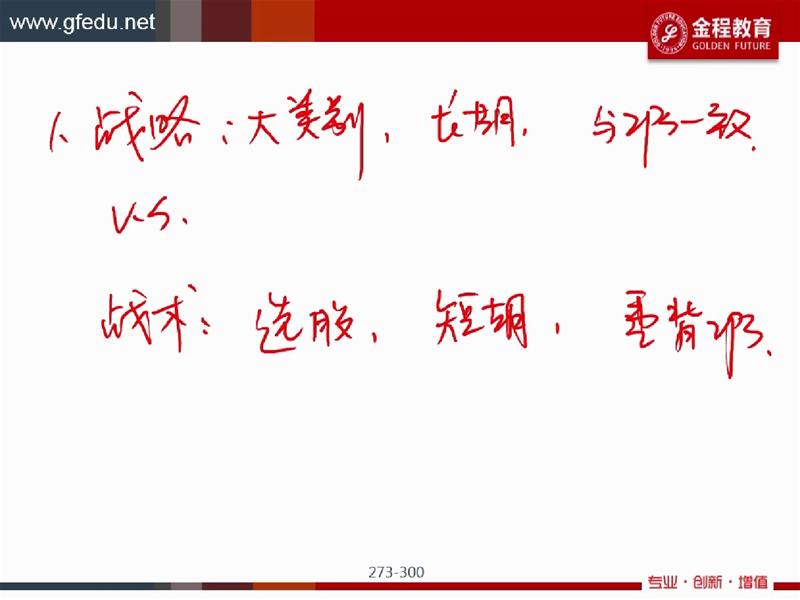 www.gfedu.net
金程教育
GOLDEN FUTURE
1、战略：大类别，长期，与IPS一致．
V.S.
战术：选股，短期，违背IPS．
273-300
专业·创新·增值